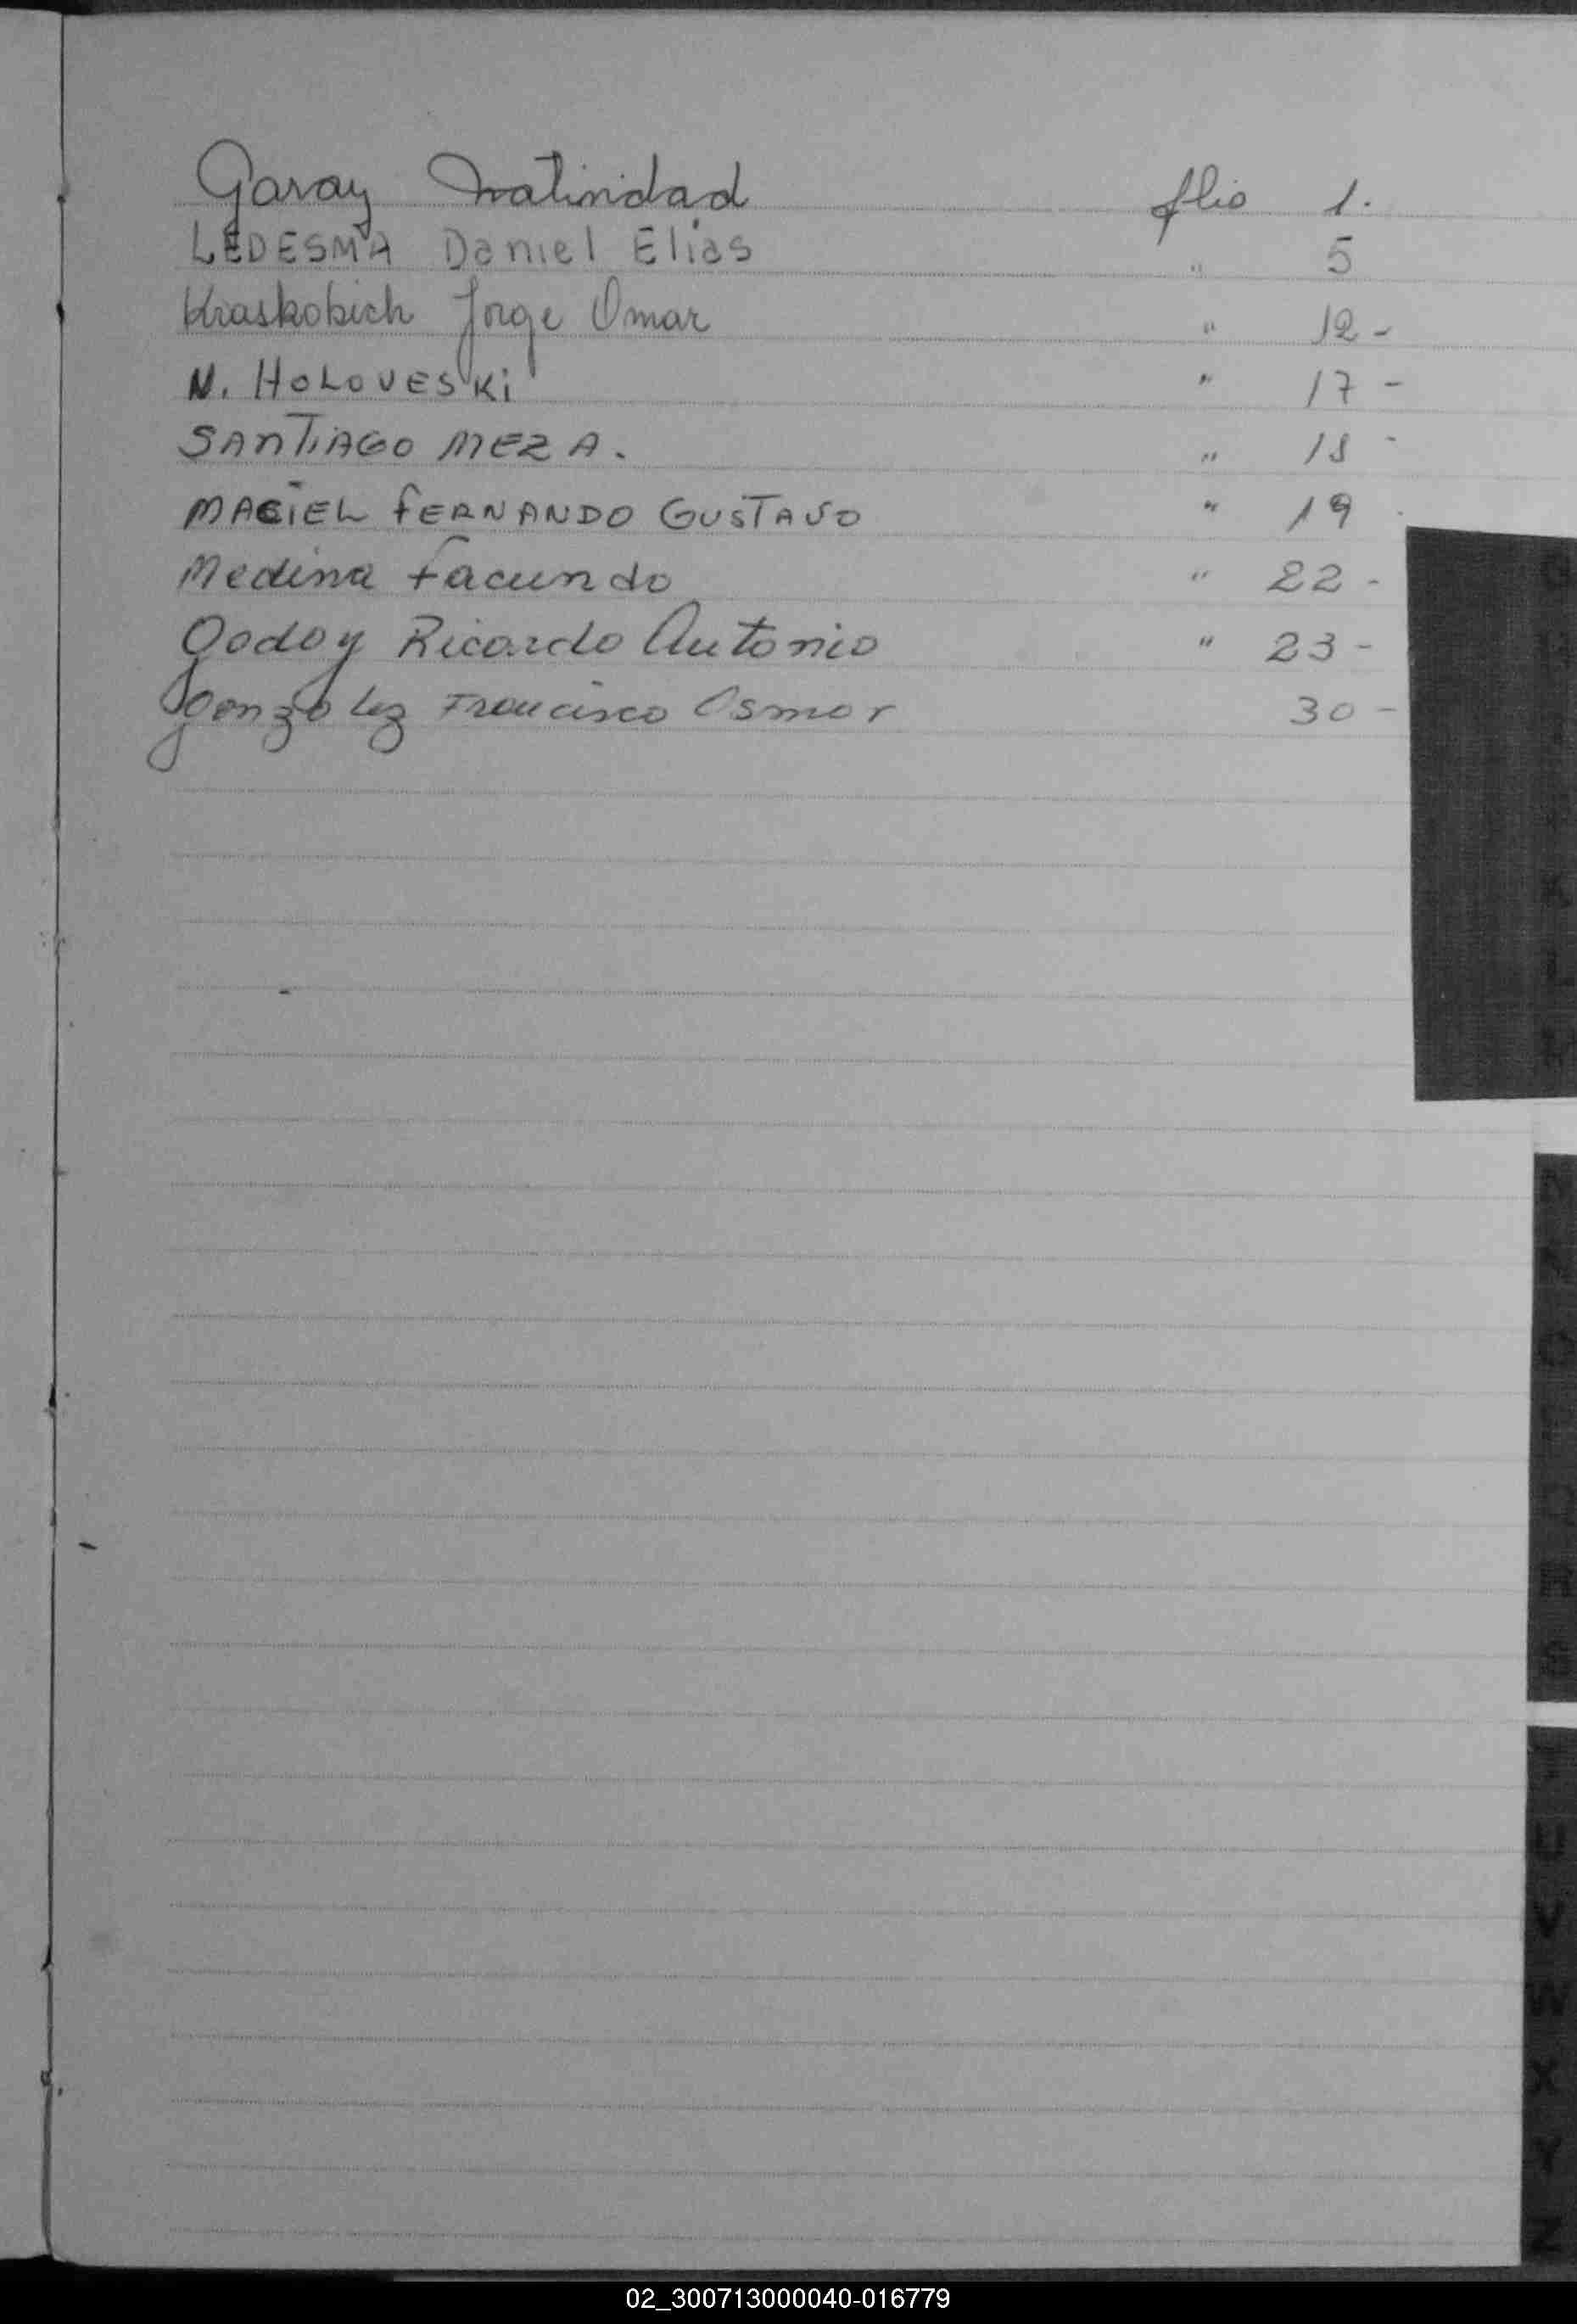 Garay Natividad flio 1.
LEDESMA Daniel Elias " 5
Kraskobich Jorge Omar " 12 -
N. HOLOVESKi " 17 -
SANTIAGO MEZA. " 18 -
MACIEL FERNANDO GUSTAVO " 19
Medina Facundo " 22 -
Godoy Ricardo Antonio " 23 -
Gonzalez Francisco Osmar 30 -
K
L
M
N
O
R
S
U
V
W
X
Y
Z
02_300713000040-016779